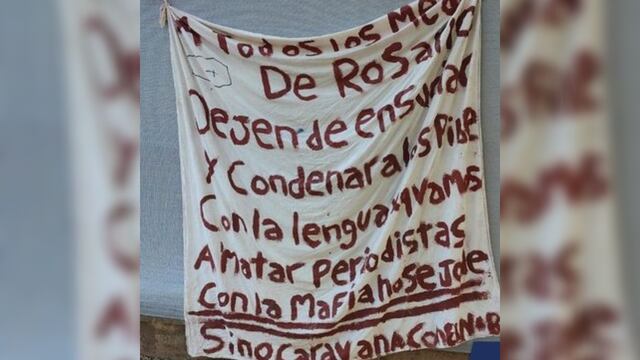 A Todos los Med
De Rosario
Dejen de ensuciar
Y Condenar a los Pibe
Con la lengua vamos
A Matar periodistas
Con la Mafia no se Jode
Sino caravana